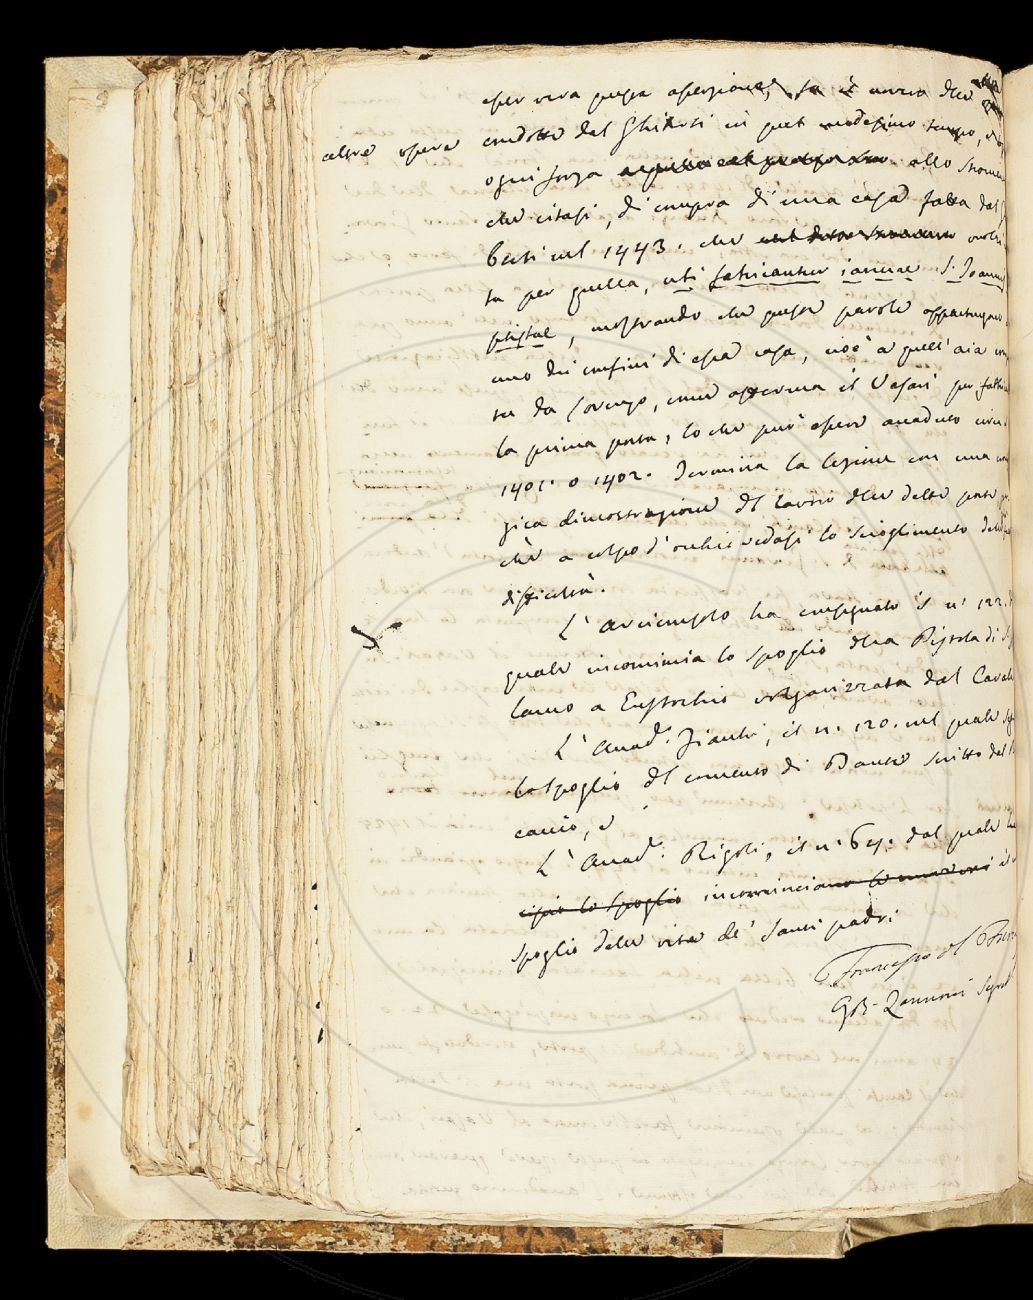 esser vera questa asserzione, fa è novero delle
altre opere condotte dal Ghiberti in quel medesimo tempo, e
ogni forza allo Strumen
che citasi, di compra di una casa fatta dal
berti nel 1443. che
ta per quella, ubi fabricantur ianuae S. Joannis
ptistae, mostrando che queste parole appartengono
uno dei confini di essa casa, cioè a quell'aia
ta da Lorenzo, come afferma il Vasari per
la prima porta, lo che può essere accaduto circa
1401. o 1402. Termina la lezione con una
gica dimostrazione del lavoro delle dette porte
chè a colpo d'occhio vedasi lo scioglimento delle
difficoltà.
L'Arciconsolo ha consegnato il n° 122.
quale incomincia lo spoglio della Pistola di S.
lamo a Eustochio volgarizzata dal Caval
L'Accad.° Fiacchi, il n. 120. nel quale
lo spoglio del comento di Dante scritto dal
caccio, e
L'Accad.° Rigoli, il n. 64. dal quale
cipio lo spoglio incominciano le
spoglio delle vite de' Santi padri
Francesco del Furia
GB. Zannoni Segret